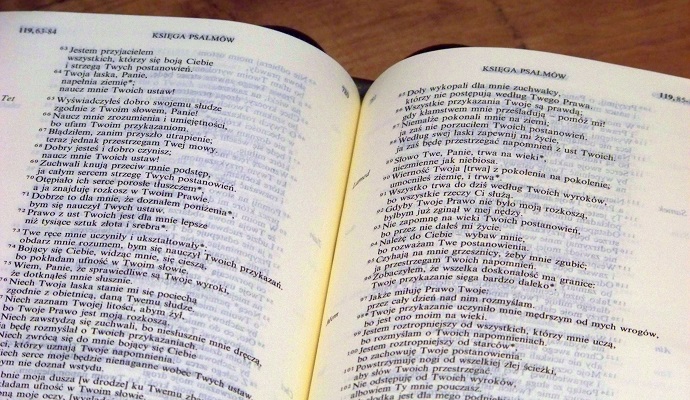 119,63-84
KSIĘGA PSALMÓW
63 Jestem przyjacielem
wszystkich, którzy się boją Ciebie
i strzegą Twych postanowień.
64 Twoja łaska, Panie,
napełnia ziemię*;
naucz mnie Twoich ustaw!
Tet
65 Wyświadczyłeś dobro swojemu słudze
zgodnie z Twoim słowem, Panie!
66 Naucz mnie zrozumienia i umiejętności,
bo ufam Twoim przykazaniom.
67 Błądziłem, zanim przyszło utrapienie,
teraz jednak przestrzegam Twej mowy.
68 Dobry jesteś i dobro czynisz;
naucz mnie Twoich ustaw!
69 Zuchwali knują przeciw mnie podstęp,
ja całym sercem strzegę Twych postanowień.
70 Otępiało ich serce porosłe tłuszczem*;
a ja znajduję rozkosz w Twoim Prawie.
71 Dobrze to dla mnie, że doznałem poniżenia*,
bym się nauczył Twych ustaw.
72 Prawo z ust Twoich jest dla mnie lepsze
niż tysiące sztuk złota i srebra*.
73 Twe ręce mnie uczyniły i ukształtowały*;
obdarz mnie rozumem, bym się nauczył Twoich przykazań.
74 Bojący się Ciebie, widząc mnie, się cieszą,
bo pokładam ufność w Twoim słowie.
75 Wiem, Panie, że sprawiedliwe są Twoje wyroki,
że dotknąłeś mnie słusznie.
Niech Twoja łaska stanie mi się pociechą
zgodnie z obietnicą, daną Twemu słudze.
Niech zaznam Twojej litości, abym żył,
bo Twoje Prawo jest moją rozkoszą.
Niech zawstydzą się zuchwali, bo niesłusznie mnie dręczą,
ja będę rozmyślał o Twoich przykazaniach.
Niech zwrócą się do mnie bojący się Ciebie
i ci, którzy uznają Twoje napomnienia.
Niech serce moje będzie nienaganne wobec Twych ustaw,
bym nie doznał wstydu.
moja dusza [w drodze] ku Twemu
pokładam ufność w Twoim słowie.
KSIĘGA PSALMÓW
119,85-
85 Doły wykopali dla mnie zuchwalcy,
którzy nie postępują według Twego Prawa.
86 Wszystkie przykazania Twoje są prawdą;
gdy kłamstwem mnie prześladują – pomóż mi!
87 Nieomal pokonali mnie na ziemi,
ja zaś nie porzuciłem Twoich postanowień.
88 Według swej łaski zapewnij mi życie,
ja zaś będę przestrzegać napomnień z ust Twoich.
Lamed
89 Słowo Twe, Panie, trwa na wieki*,
niezmienne jak niebiosa.
90 Wierność Twoja [trwa] z pokolenia na pokolenie;
umocniłeś ziemię, i trwa*.
91 Wszystko trwa do dziś według Twoich wyroków,
bo wszystkie rzeczy Ci służą.
92 Gdyby Twoje Prawo nie było moją rozkoszą,
byłbym już zginął w mej nędzy.
93 Nie zapomnę na wieki Twoich postanowień,
bo przez nie dałeś mi życie.
94 Należę do Ciebie – wybaw mnie,
bo rozważam Twe postanowienia.
95 Czyhają na mnie grzesznicy, żeby mnie zgubić;
ja przestrzegam Twoich napomnień.
96 Zobaczyłem, że wszelka doskonałość ma granice:
Twoje przykazanie sięga bardzo daleko*.
Mem
97 Jakże miłuję Prawo Twoje:
przez cały dzień nad nim rozmyślam.
98 Twoje przykazanie uczyniło mnie mędrszym od mych wrogów,
bo jest ono moim na wieki.
99 Jestem roztropniejszy od wszystkich, którzy mnie uczą,
bo rozmyślam o Twoich napomnieniach.
100 Jestem roztropniejszy od starców*,
bo zachowuję Twoje postanowienia.
101 Powstrzymuję nogi od wszelkiej złej ścieżki,
aby słów Twoich przestrzegać.
102 Nie odstępuję od Twoich wyroków,
albowiem Ty mnie pouczasz.
słodka jest dla mego podniebienia